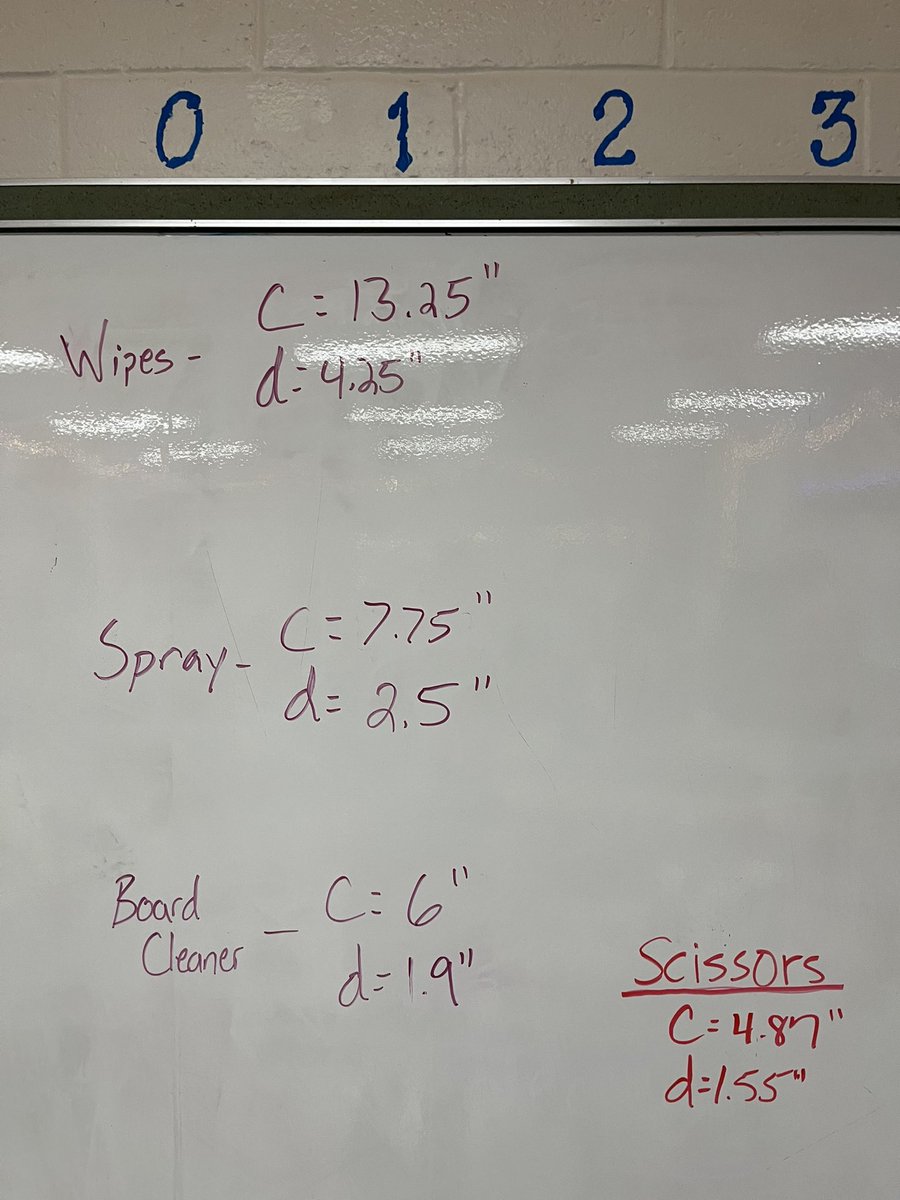 0 1 2 3
C = 13.25"
Wipes -
d = 4.25"
C = 7.75"
Spray -
d = 2.5"
Board
Cleaner -
C = 6"
d = 1.9"
Scissors
C = 4.87"
d = 1.55"